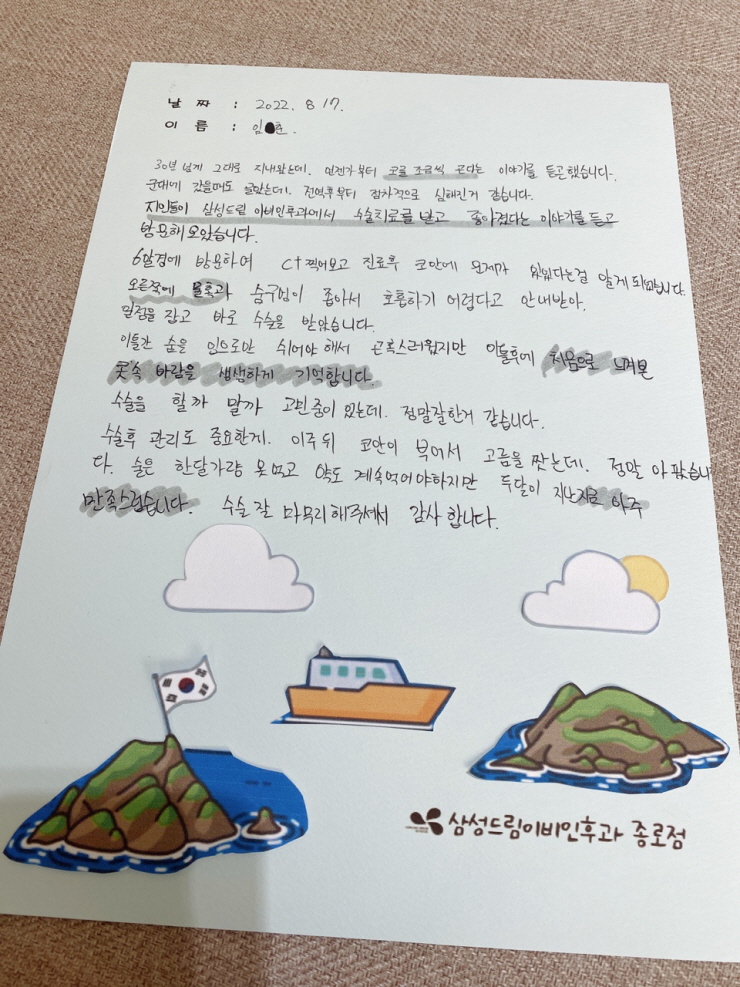 날 짜 : 2022. 8 17.
이 름 : 임 훈.
30년 넘게 그대로 지내왔는데. 언젠가부터 코를 조금씩 곤다는 이야기를 듣곤했습니다.
군대에 갔을때도 골았는데. 전역후부터 점차적으로 심해진거 같습니다.
지인들이 삼성드림 이비인후과에서 수술치료를 받고 좋아졌다는 이야기를 듣고
방문해보았습니다.
6월경에 방문하여 CT찍어보고 진료후 코안에 문제가 있었다는걸 알게되었습니다.
오른쪽에 물혹과 숨구멍이 좁아서 호흡하기 어렵다고 안내받아.
일정을 잡고 바로 수술을 받았습니다.
이틀간 숨을 입으로만 쉬어야해서 곤혹스러웠지만 이틀후에 처음으로 느껴본
콧속 바람을 생생하게 기억합니다.
수술을 할까 말까 고민중이었는데. 정말잘한거 같습니다.
수술후 관리도 중요한게. 이주뒤 코안이 부어서 고름을 짰는데. 정말 아팠습니
다. 술은 한달가량 못먹고 약도 계속먹어야하지만 두달이 지난지금 아주
만족스럽습니다. 수술 잘 마무리해주셔서 감사합니다.
삼성드림이비인후과 종로점